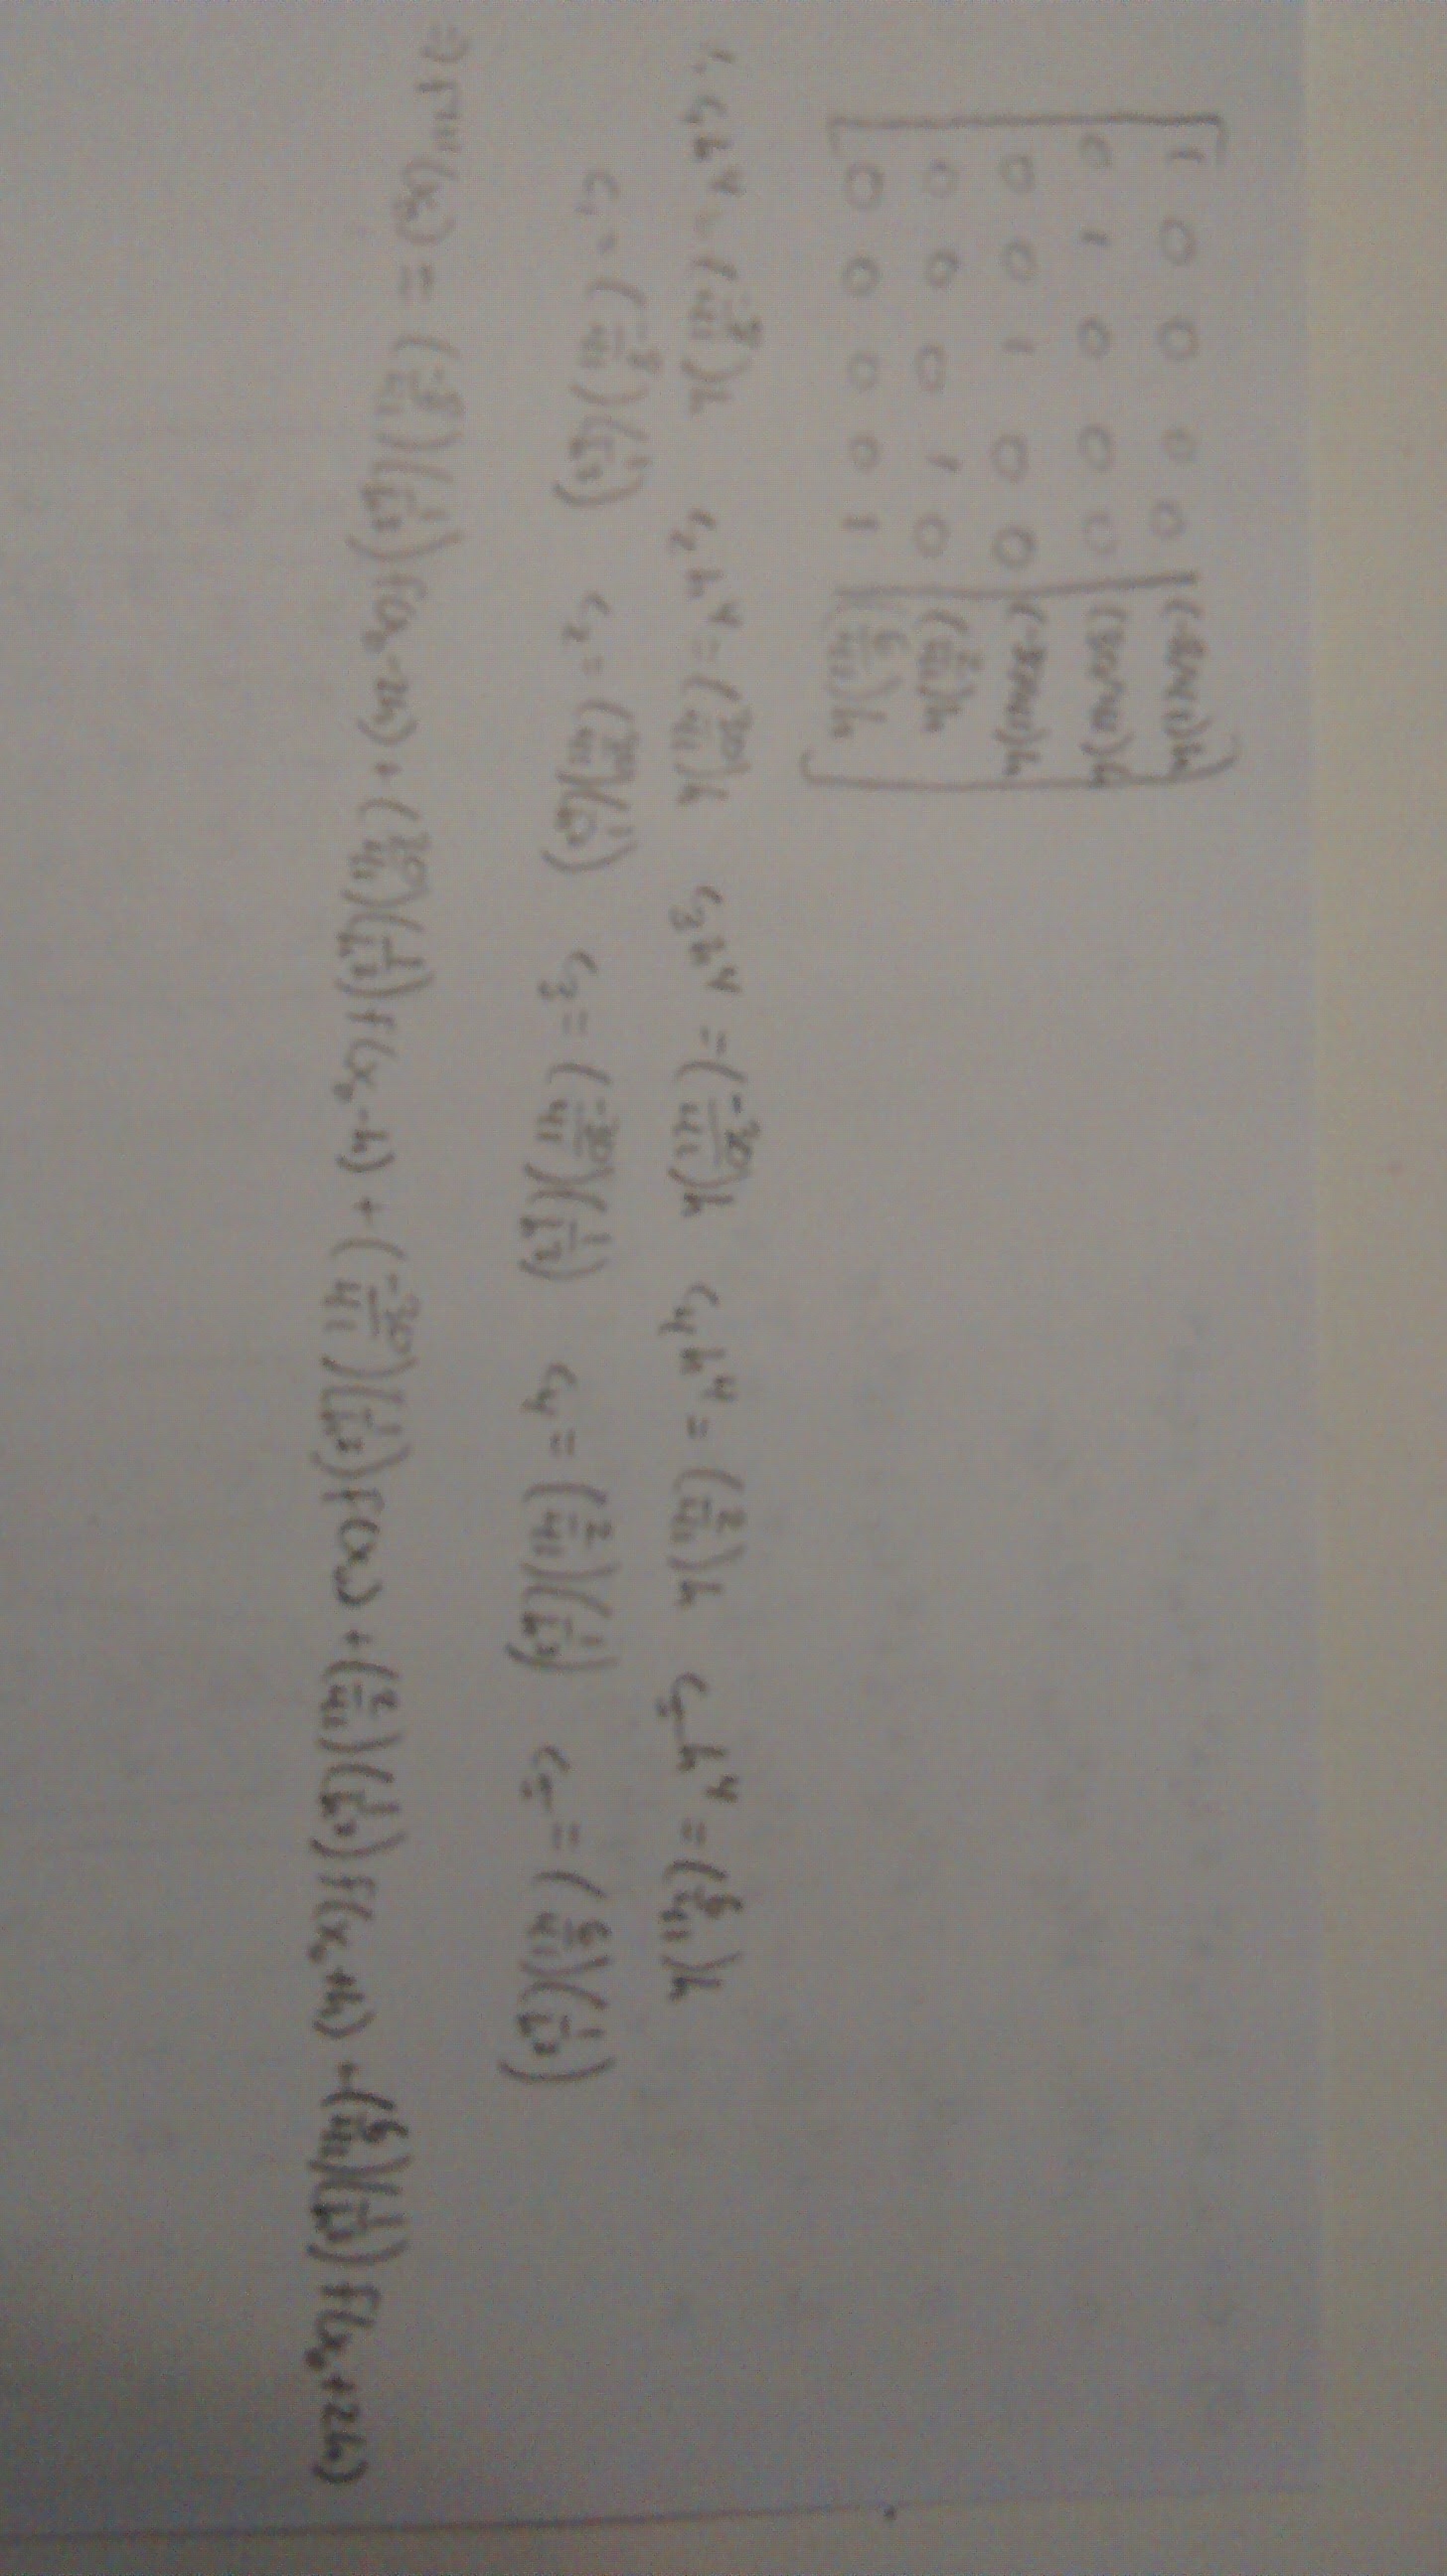 1 0 0 0 0 | (-8/41)h
0 1 0 0 0 | (30/41)h
0 0 1 0 0 | (-30/41)h
0 0 0 1 0 | (2/41)h
0 0 0 0 1 | (6/41)h
c₁h⁴ = (-8/41)h c₂h⁴ = (30/41)h c₃h⁴ = (-30/41)h c₄h⁴ = (2/41)h c₅h⁴ = (6/41)h
c₁ = (-8/41)(1/h³) c₂ = (30/41)(1/h³) c₃ = (-30/41)(1/h³) c₄ = (2/41)(1/h³) c₅ = (6/41)(1/h³)
⇒ f'''(x₀) = (-8/41)(1/h³)f(x₀-2h) + (30/41)(1/h³)f(x₀-h) + (-30/41)(1/h³)f(x₀) + (2/41)(1/h³)f(x₀+h) + (6/41)(1/h³)f(x₀+2h)